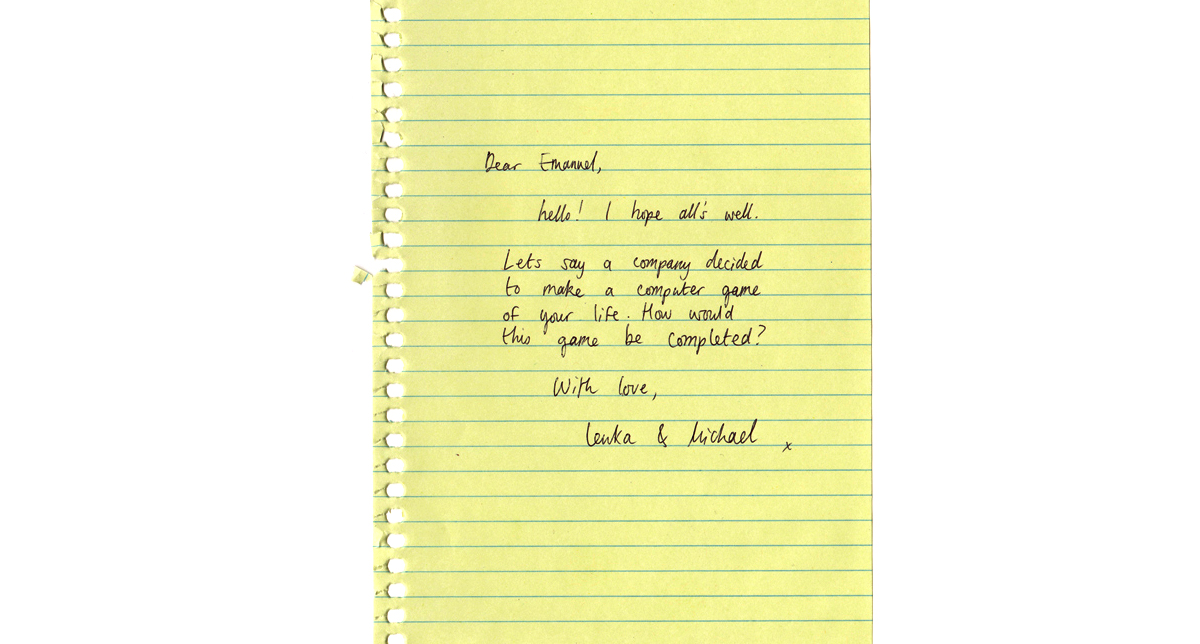 Dear Emannel,
hello! I hope all's well.
Lets say a company decided
to make a computer game
of your life. How would
this game be completed?
With love,
Lenka & Michael x